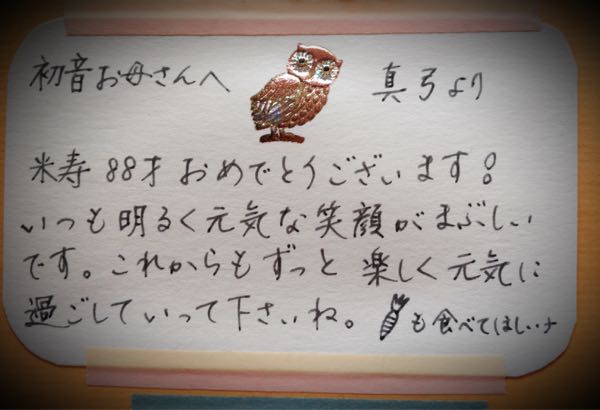 初音お母さんへ 真弓より
米寿88才おめでとうございます!
いつも明るく元気な笑顔がまぶしい
です。これからもずっと楽しく元気に
過ごしていって下さいね。 も食べてほしいナ